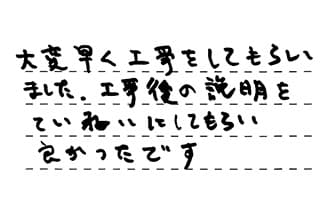 大変早く工事をしてもらい
ました。工事後の説明を
ていねいにしてもらい
良かったです